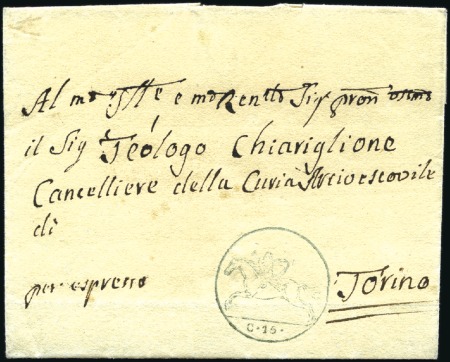 Al mo Ill.e e mo R.en.do Sig.
il Sig Teologo Chiariglione
Cancelliere della Curia Arcivescovile
di
per espresso
Torino
C. 15.